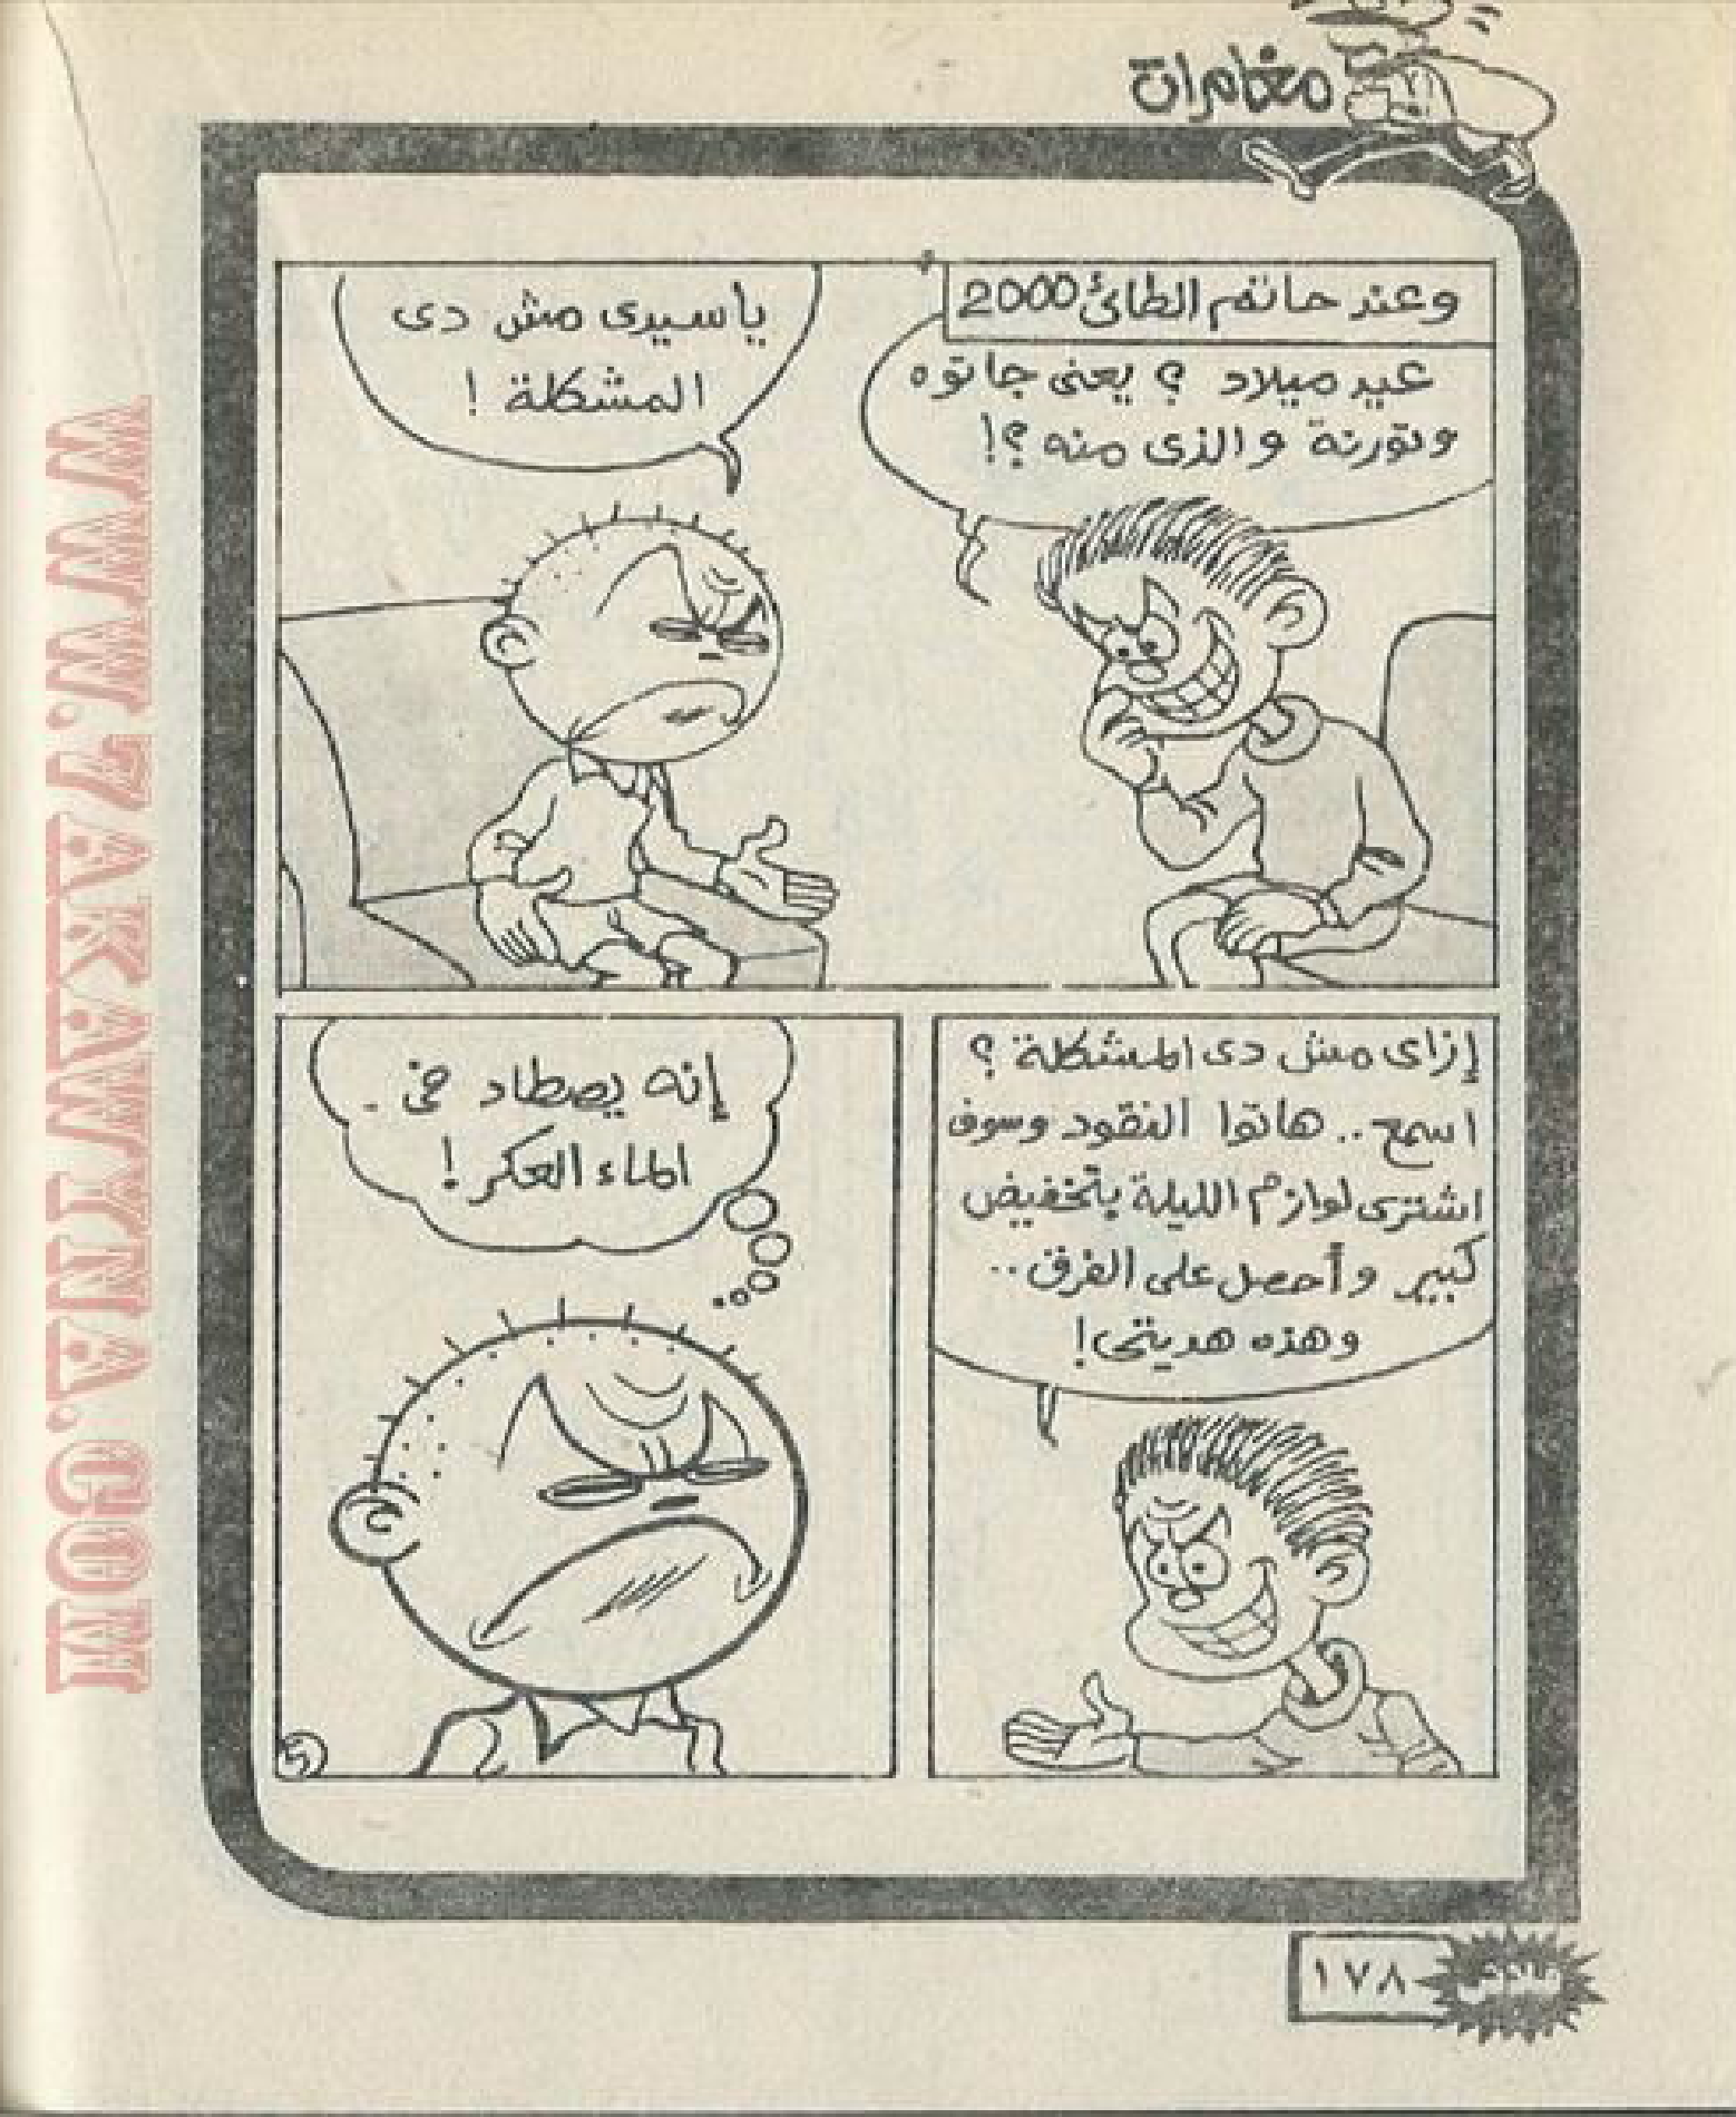 مغامرات
وعند حاتم الطائى 2000
عيد ميلاد ؟ يعنى جاتوه
وتورتة والذى منه ؟!
ياسيدى مش دى
المشكلة !
إزاى مش دى المشكلة ؟
اسمع .. هاتوا النقود وسوف
اشترى لوازم الليلة بتخفيض
كبير وأحصل على الفرق ..
وهذه هديتى !
إنه يصطاد فى
الماء العكر !
5
١٧٨
WWW.7AKAWINA.COM